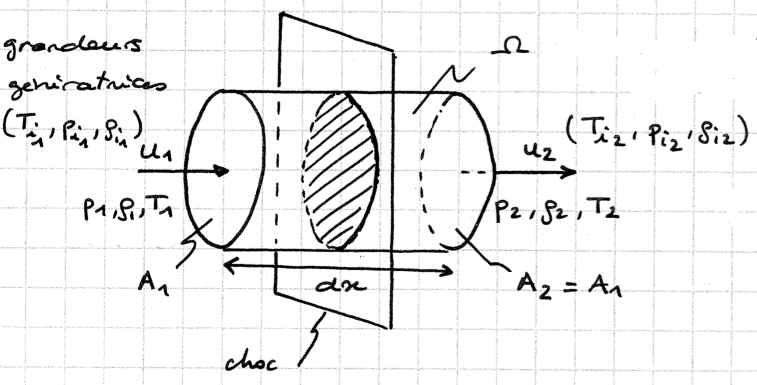 grandeurs
génératrices
(Ti1, pi1, ρi1)
u1
p1, ρ1, T1
A1
dx
choc
Ω
u2
(Ti2, pi2, ρi2)
p2, ρ2, T2
A2 = A1